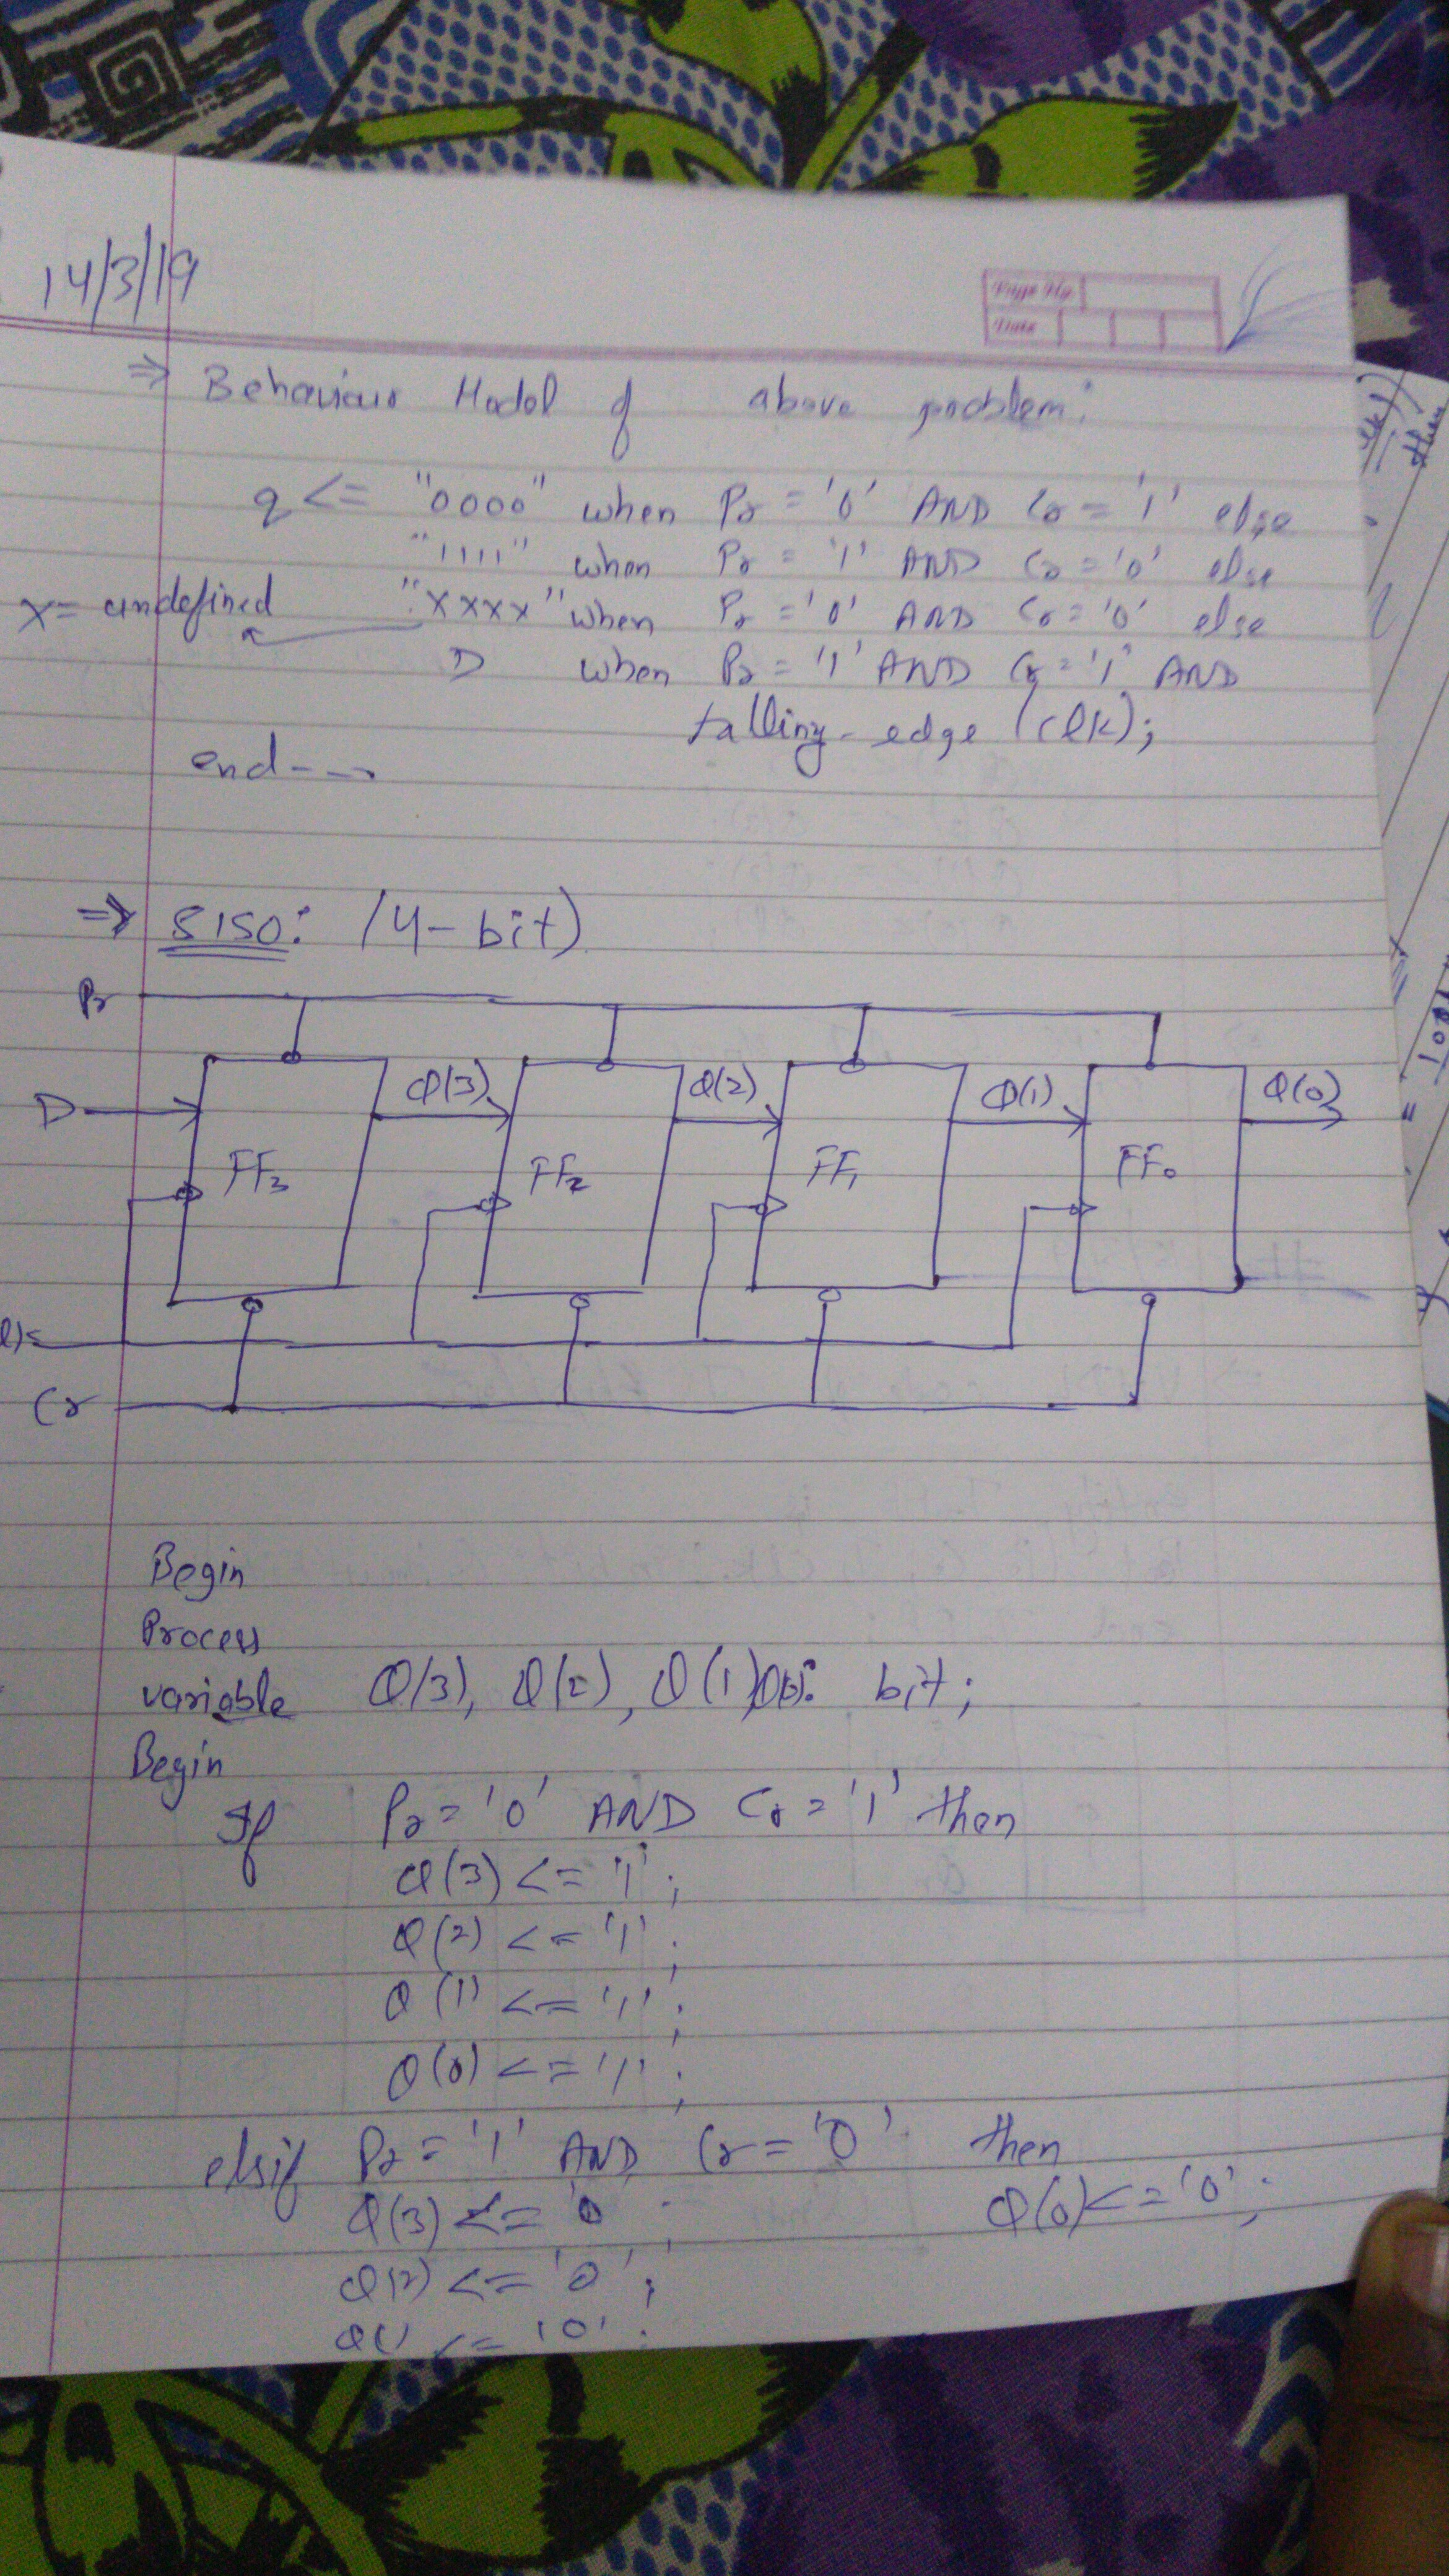 14/3/19
Page No.
Date
⇒ Behaviour Model of above problem:
q <= "0000" when Pr = '0' AND Cr = '1' else
"1111" when Pr = '1' AND Cr = '0' else
x = undefined "xxxx" when Pr = '0' AND Cr = '0' else
D when Pr = '1' AND Cr = '1' AND
falling-edge (clk);
end---
⇒ SISO: (4-bit)
Pr
D Q(3) Q(2) Q(1) Q(0)
FF3 FF2 FF1 FF0
Cr
Begin
Process
variable Q(3), Q(2), Q(1) Q(0): bit;
Begin
If Pr = '0' AND Cr = '1' then
Q(3) <= '1';
Q(2) <= '1';
Q(1) <= '1';
Q(0) <= '1';
elsif Pr = '1' AND Cr = '0' then
Q(3) <= '0'; Q(0) <= '0';
Q(2) <= '0';
Q(1) <= '0';